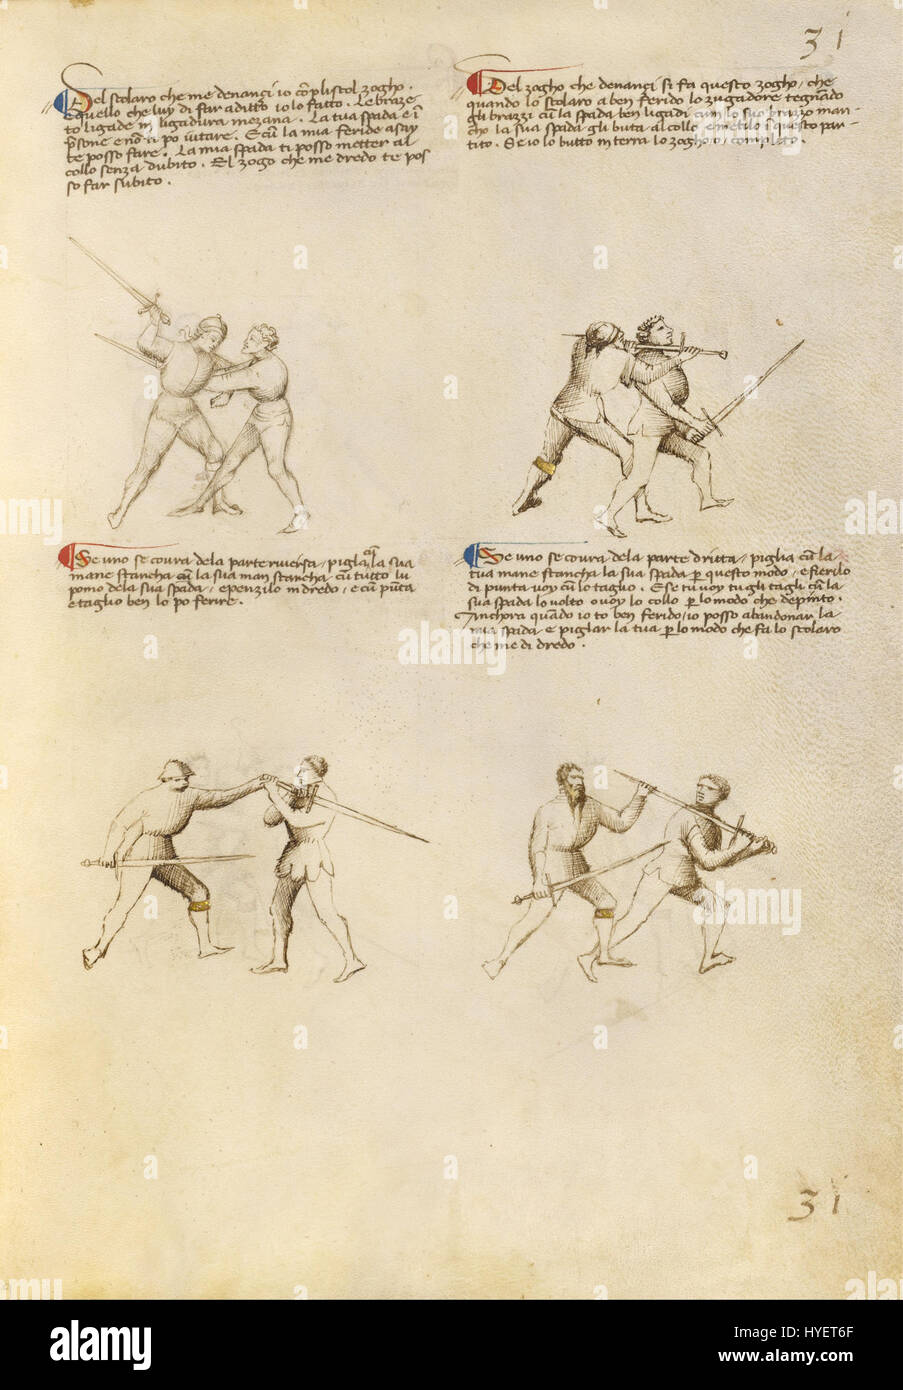 31
Del scolaro che me denançi io cõplistol zogho.
E quello che luy di far aditto io lo fatto. Le braze
to ligade in ligadura mezana. La tua spada e ĩ
p̃sone e nõ ti po iutare. E cũ la mia feride asay
te posso fare. La mia spada ti posso metter al
collo senza dubito. El zogo che me dredo te pos
so far subito.
Del zogho che denançi si fa questo zogho, che
quando lo scolaro a ben ferido lo zugadore tegnãdo
gli brazzi cũ la spada ben ligadi cum lo suo brazzo man-
cho la sua spada gli buta al collo e metilo ĩ questo par-
tito. Se io lo butto in terra lo zogho o completo.
Se uno se covra dela parte riversa, piglia cũ la sua
mane stancha la sua man stancha cũ tutto lu
pomo dela sua spada, e penzilo indredo, e cũ pũta
e taglio ben lo po ferire.
Se uno se covra dela parte dritta, piglia cũ la
tua mane stancha la sua spada per questo modo, e ferilo
di punta voy cũ lo taglio. E se tu voy tu gli tagli cũ la
sua spada lo volto o voy lo collo per lo modo che depinto.
Anchora quãdo io to ben ferido, io posso abandonar la
mia spada e pigliar la tua per lo modo che fa lo scolaro
che me di dredo.
31
alamy
a
alamy
Image ID: HYET6F
www.alamy.com